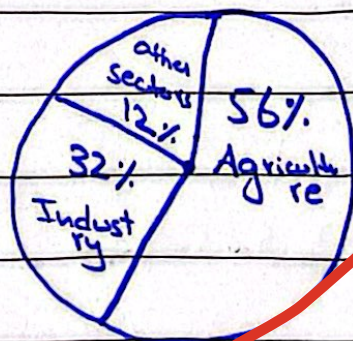 other
sectors
12%
56%
Agricultu
re
32%
Indust
ry